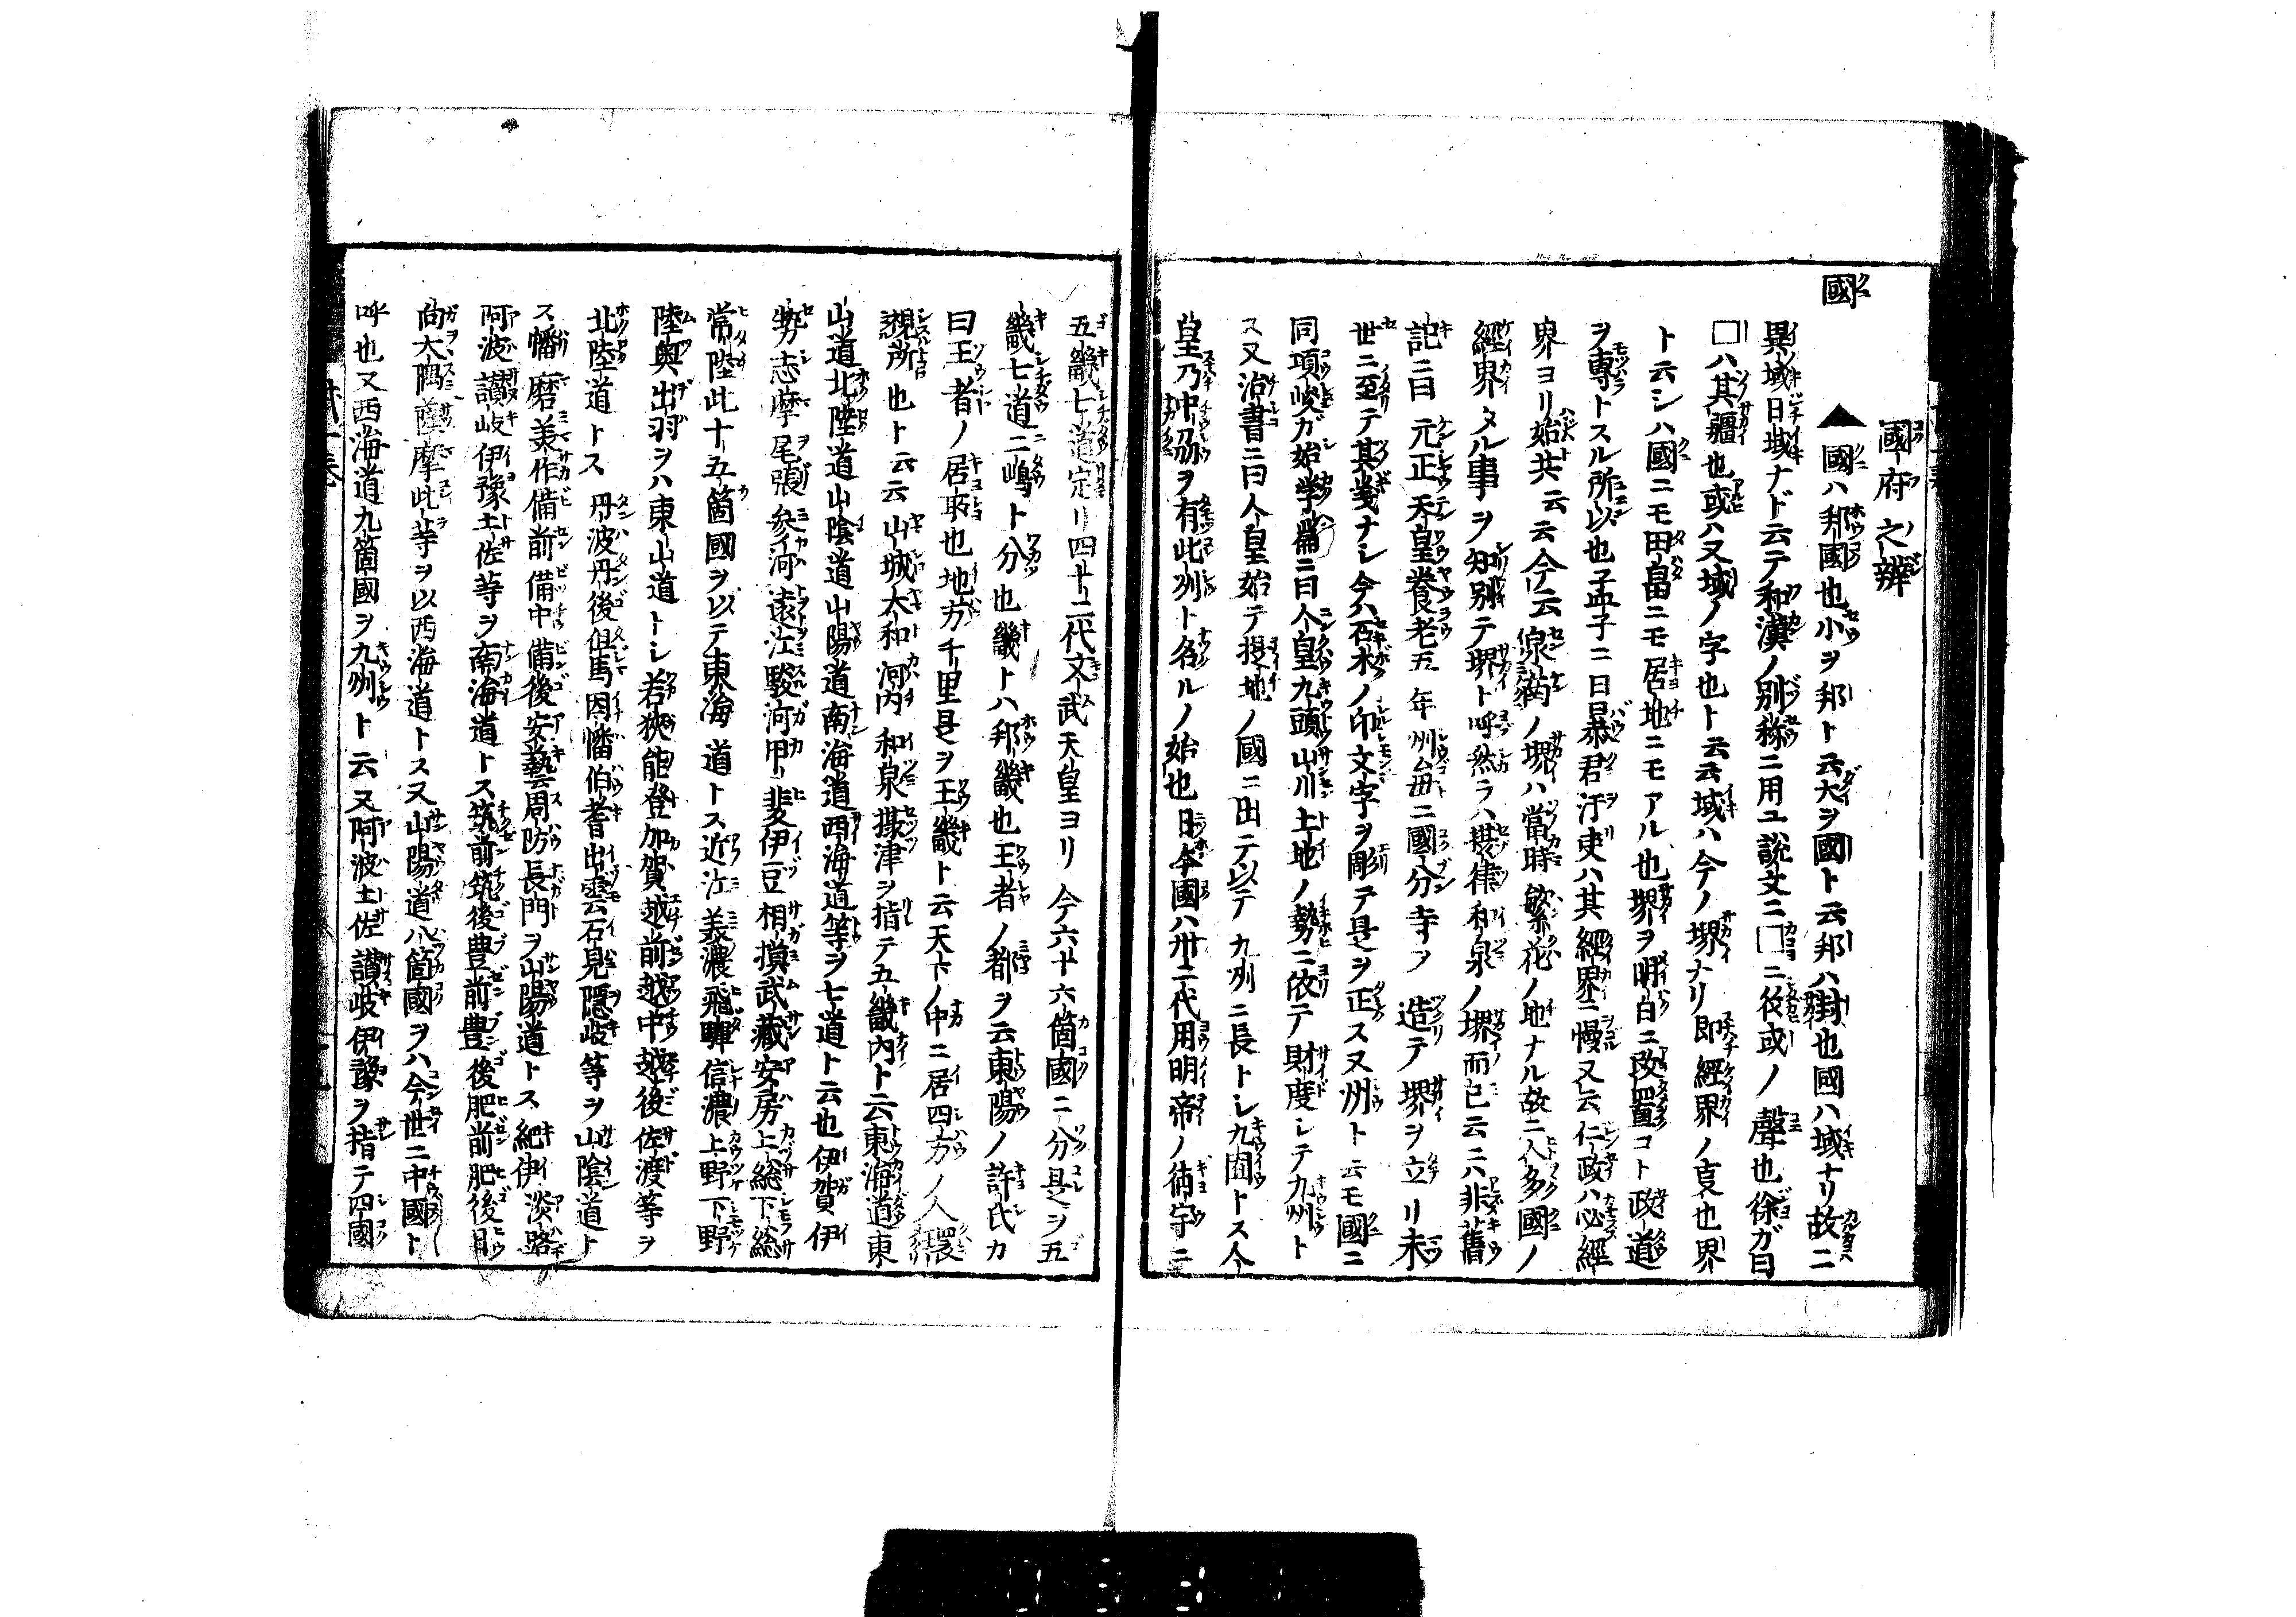 國府之辨
國
▲國ハ邦國也小ヲ邦ト云大ヲ國ト云邦ハ封也國ハ域ナリ故ニ
異域日域ナド云テ和漢ノ別稱ニ用ユ說文ニ囗ニ从或ノ聲也徐ガ曰
囗ハ其疆也或ハ又域ノ字也ト云云域ハ今ノ堺ナリ即經界ノ㕝也界
ト云シハ國ニモ田畠ニモ居地ニモアル也堺ヲ明白ニ改置コト政道
ヲ專トスル所以也孟子ニ曰暴君汙吏ハ其經界ニ慢又云仁政ハ必經
界ヨリ始共云云今云泉ノ堺ハ當時繁花ノ地ナル故ニ人多國ノ
經界タル事ヲ知別テ堺ト呼然ラハ攝津和泉ノ堺而已云ニハ非舊
記ニ曰元正天皇養老五年州毎ニ國分寺ヲ造テ堺ヲ立リ未
世ニ至テ其㦮ナシ今ハ石木ノ印文字ヲ彫テ是ヲ正ス又州ト云モ國ニ
同項峻ガ始学篇ニ曰人皇九頭山川土地ノ勢ニ依テ財度シテ九州ト
ス又治書ニ曰人皇始テ提地ノ國ニ出テ以テ九州ニ長トシ九囿トス今
皇乃中ヲ有此州ト名ルノ始也日本國ハ卅二代用明帝ノ御宇ニ
五畿七道定リ四十二代文武天皇ヨリ今六十六箇國ニ分是ヲ五
畿七道二嶋ト分也畿トハ邦畿也王者ノ都ヲ云東陽ノ許氏カ
曰王者ノ居所也地方千里是ヲ王畿ト云天下ノ中ニ居四方ノ人環
視所也ト云山城大和河内和泉攝津ヲ指テ五畿内ト云東海道東
山道北陸道山陰道山陽道南海道西海道等ヲ七道ト云也伊賀伊
勢志摩尾張參河遠江駿河甲斐伊豆相摸武藏安房上総下総
常陸此十五箇國ヲ以テ東海道トス近江美濃飛驒信濃上野下野
陸奥出羽ヲハ東山道トシ若狹能登加賀越前越中越後佐渡等ヲ
北陸道トス丹波丹後但馬因幡伯耆出雲石見隠岐等ヲ山陰道ト
ス幡磨美作備前備中備後安藝周防長門ヲ山陽道トス紀伊淡路
阿波讃岐伊豫土佐等ヲ南海道トス筑前筑後豊前豊後肥前肥後日
向大隅薩摩此等ヲ以西海道トス又山陽道八箇國ヲハ今世ニ中國ト
呼也又西海道九箇國ヲ九州ト云又阿波土佐讃岐伊豫ヲ指テ四國